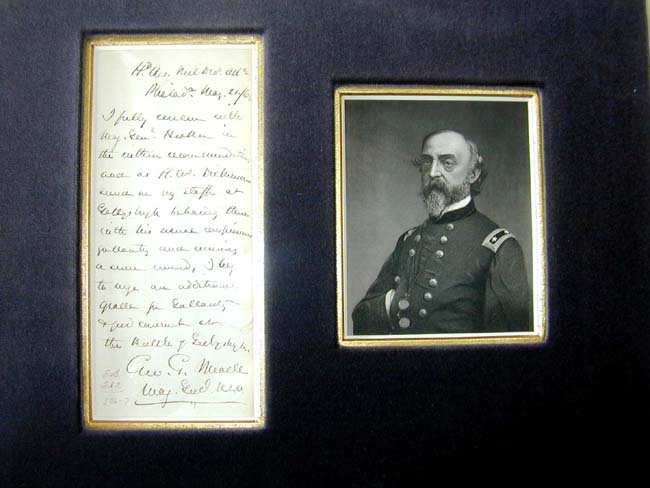 Hd Qrs. Mil Div. Atl.
Philada. May. 24/6
I fully concur with
Maj. Genl. Hooker in
the within recommendation
and as A. W. Dickinson
served on my staff at
Gettysburgh behaving there
with his usual conspicuous
gallantry and receiving
a severe wound, I beg
to urge an additional
grade for Gallantry
& good conduct at
the Battle of Gettysburgh.
Geo. G. Meade
Maj. Genl. USA